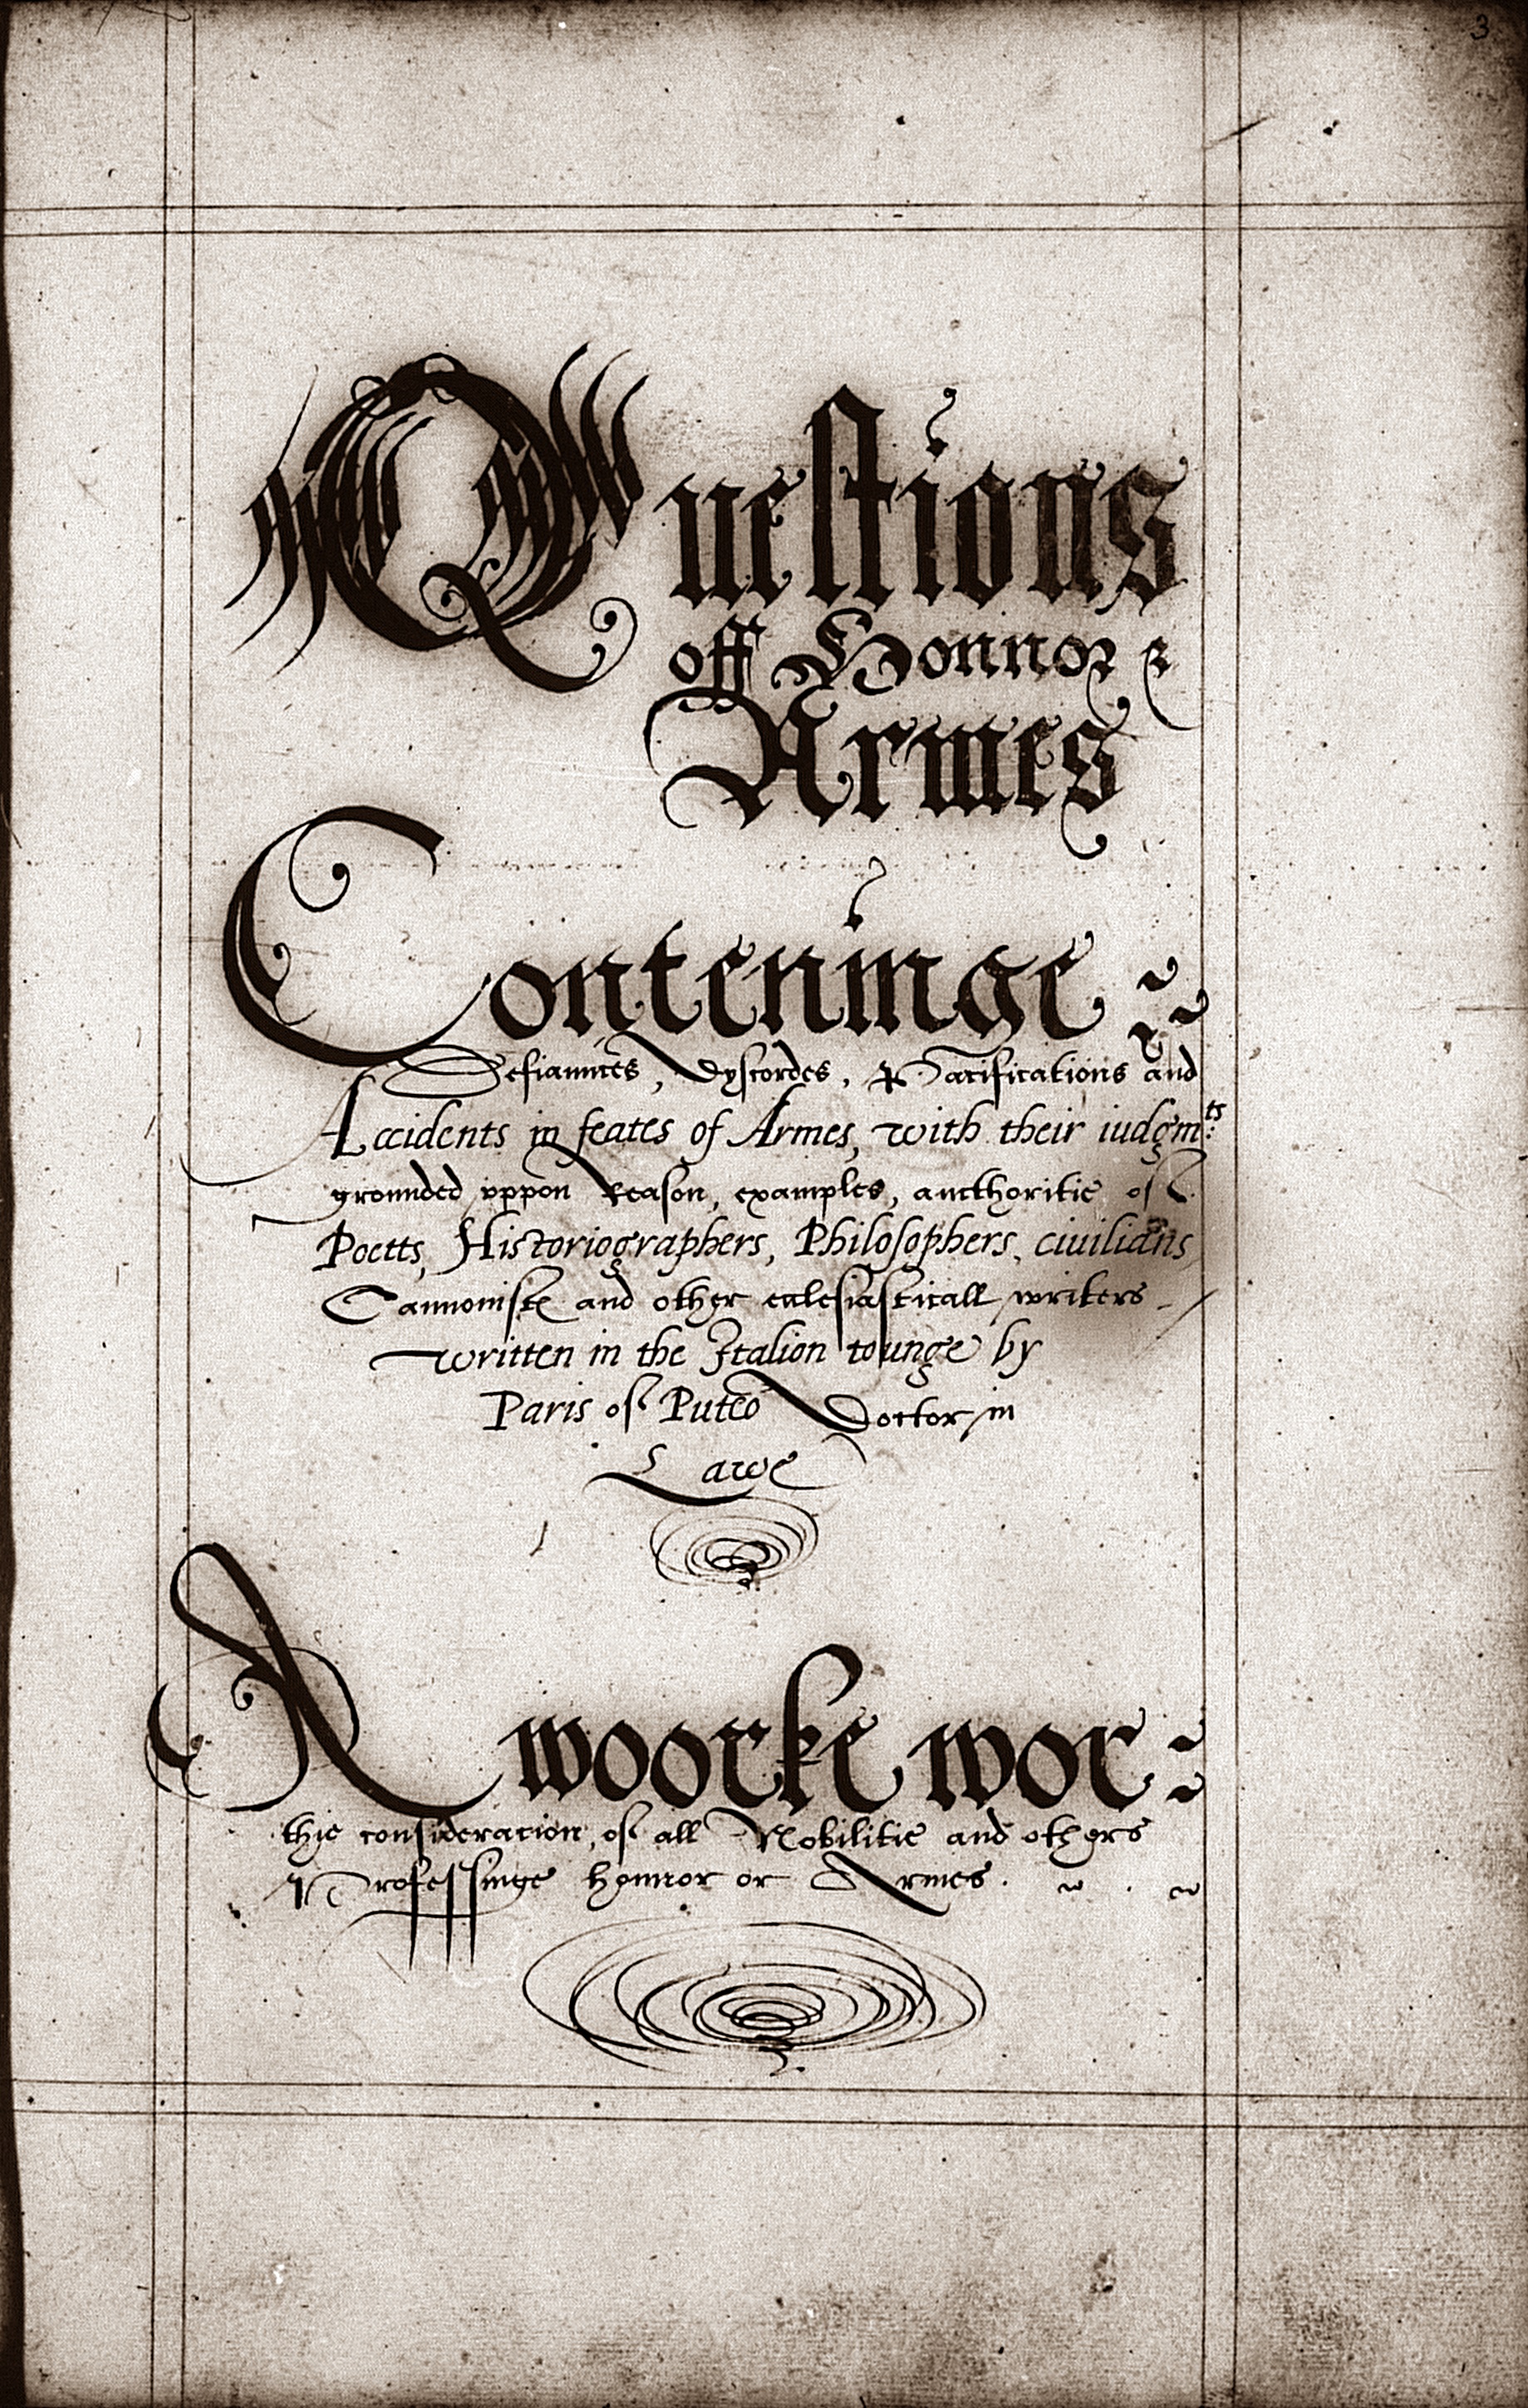 3
Questions
off Honnor &
Armes
Conteninge
Defiaunces, Dyscordes, Pacifications and
Accidents in feates of Armes, with their iudgmts:
grounded vppon Reason, examples, aucthoritie of
Poetts, Historiographers, Philosophers, ciuilians,
Cannonistes and other ecclesiasticall writers
written in the Italion tounge by
Paris of Puteo Doctor in
Lawe
A woorke wor=
thie consideracion, of all Nobilitie and others
Professinge honnor or Armes.